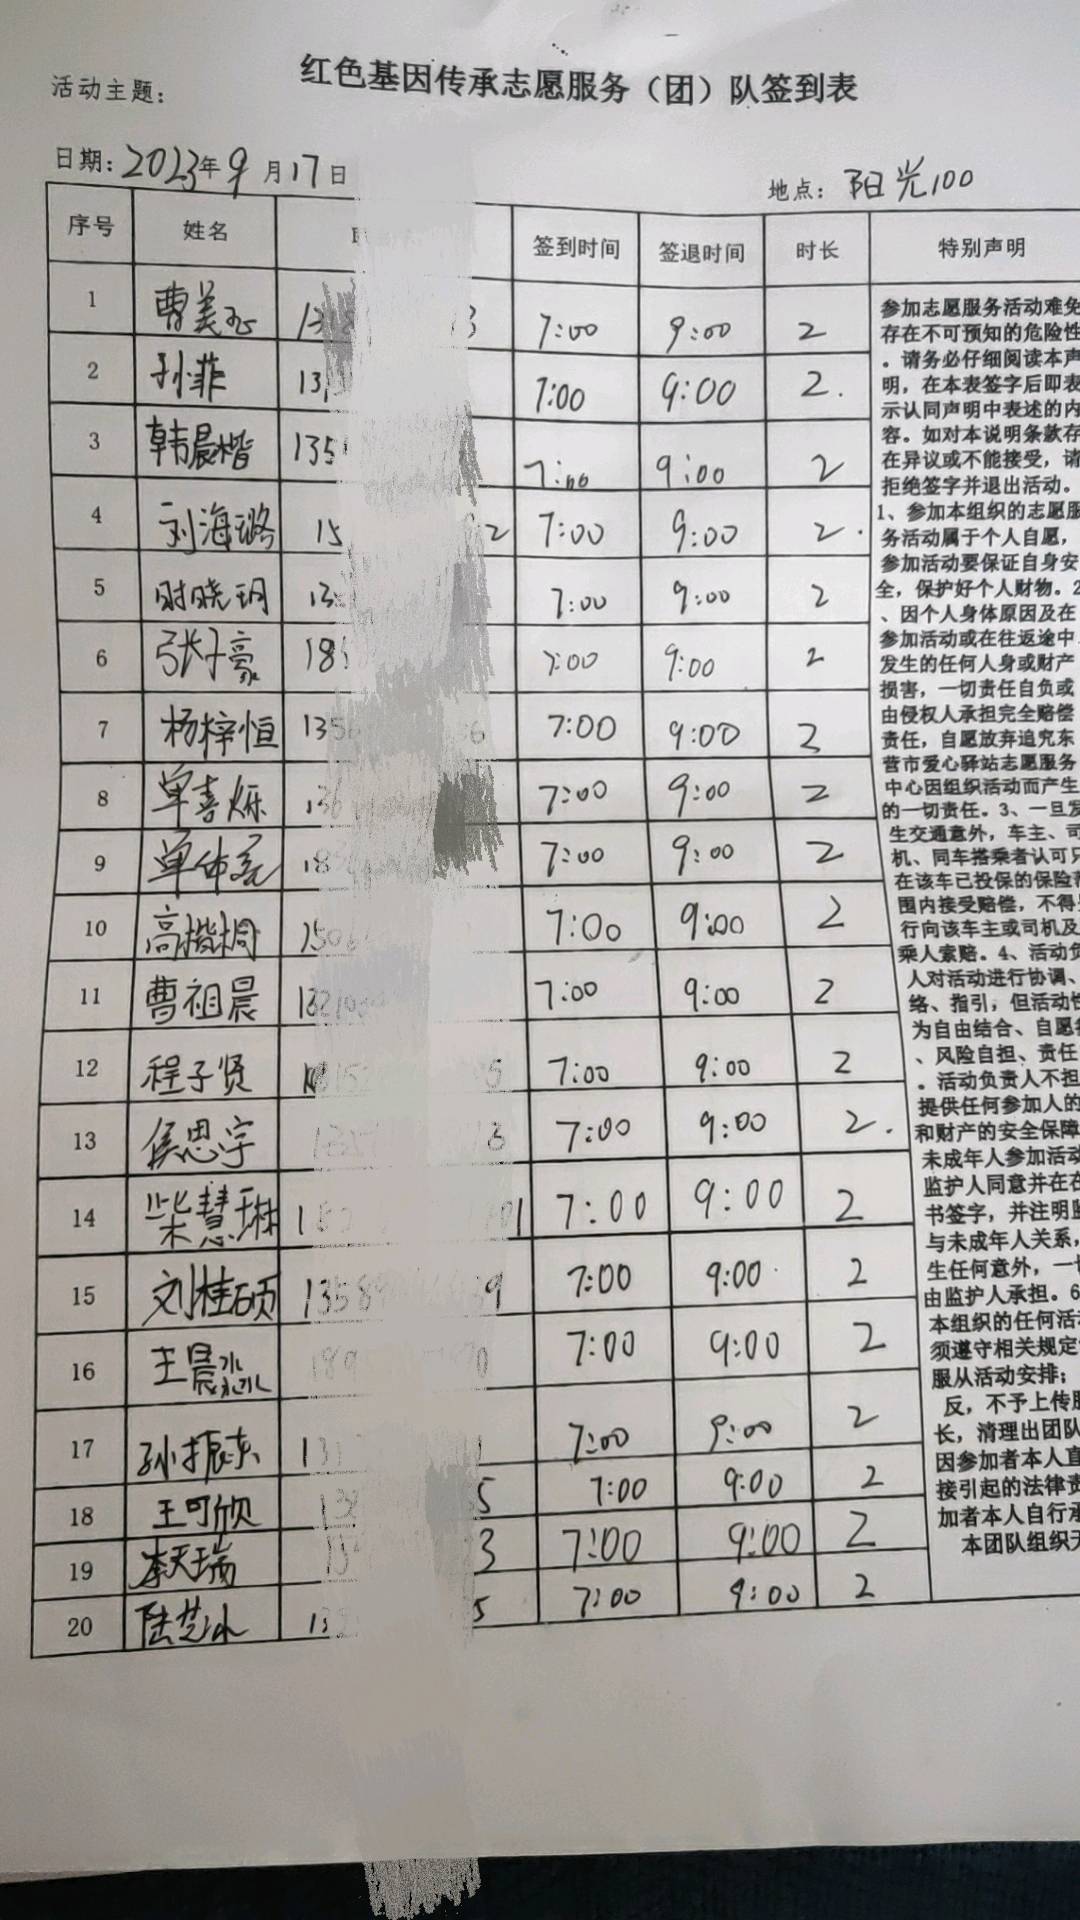 红色基因传承志愿服务（团）队签到表
活动主题：
日期：2023年9月17日
地点：阳光100
序号 姓名 签到时间 签退时间 时长 特别声明
1 7:00 9:00 2
2 孙菲 7:00 9:00 2.
3 韩晨楷 7:00 9:00 2
4 刘海璐 7:00 9:00 2.
5 时晓玥 7:00 9:00 2
6 张子豪 7:00 9:00 2
7 杨梓恒 7:00 9:00 2
8 单喜烁 7:00 9:00 2
9 7:00 9:00 2
10 高楷桐 7:00 9:00 2
11 曹祖晨 7:00 9:00 2
12 程子贤 7:00 9:00 2
13 侯思宇 7:00 9:00 2.
14 柴慧琳 7:00 9:00 2
15 刘桂硕 7:00 9:00 2
16 王晨淼 7:00 9:00 2
17 孙振东 7:00 9:00 2
18 王可欣 7:00 9:00 2
19 李天瑞 7:00 9:00 2
20 陆艺冰 7:00 9:00 2
参加志愿服务活动难免
存在不可预知的危险性
。请务必仔细阅读本声
明，在本表签字后即表
示认同声明中表述的内
容。如对本说明条款存
在异议或不能接受，请
拒绝签字并退出活动。
1、参加本组织的志愿服
务活动属于个人自愿，
参加活动要保证自身安
全，保护好个人财物。2
、因个人身体原因及在
参加活动或在往返途中
发生的任何人身或财产
损害，一切责任自负或
由侵权人承担完全赔偿
责任，自愿放弃追究东
营市爱心驿站志愿服务
中心因组织活动而产生
的一切责任。3、一旦发
生交通意外，车主、司
机、同车搭乘者认可只
在该车已投保的保险范
围内接受赔偿，不得
行向该车主或司机及
乘人索赔。4、活动负
人对活动进行协调、
络、指引，但活动性
为自由结合、自愿
、风险自担、责任
。活动负责人不担
提供任何参加人的
和财产的安全保障
未成年人参加活动
监护人同意并在
书签字，并注明监
与未成年人关系，
生任何意外，一切
由监护人承担。6
本组织的任何活动
须遵守相关规定
服从活动安排；
反，不予上传服
长，清理出团队
因参加者本人直
接引起的法律责
加者本人自行承
本团队组织无